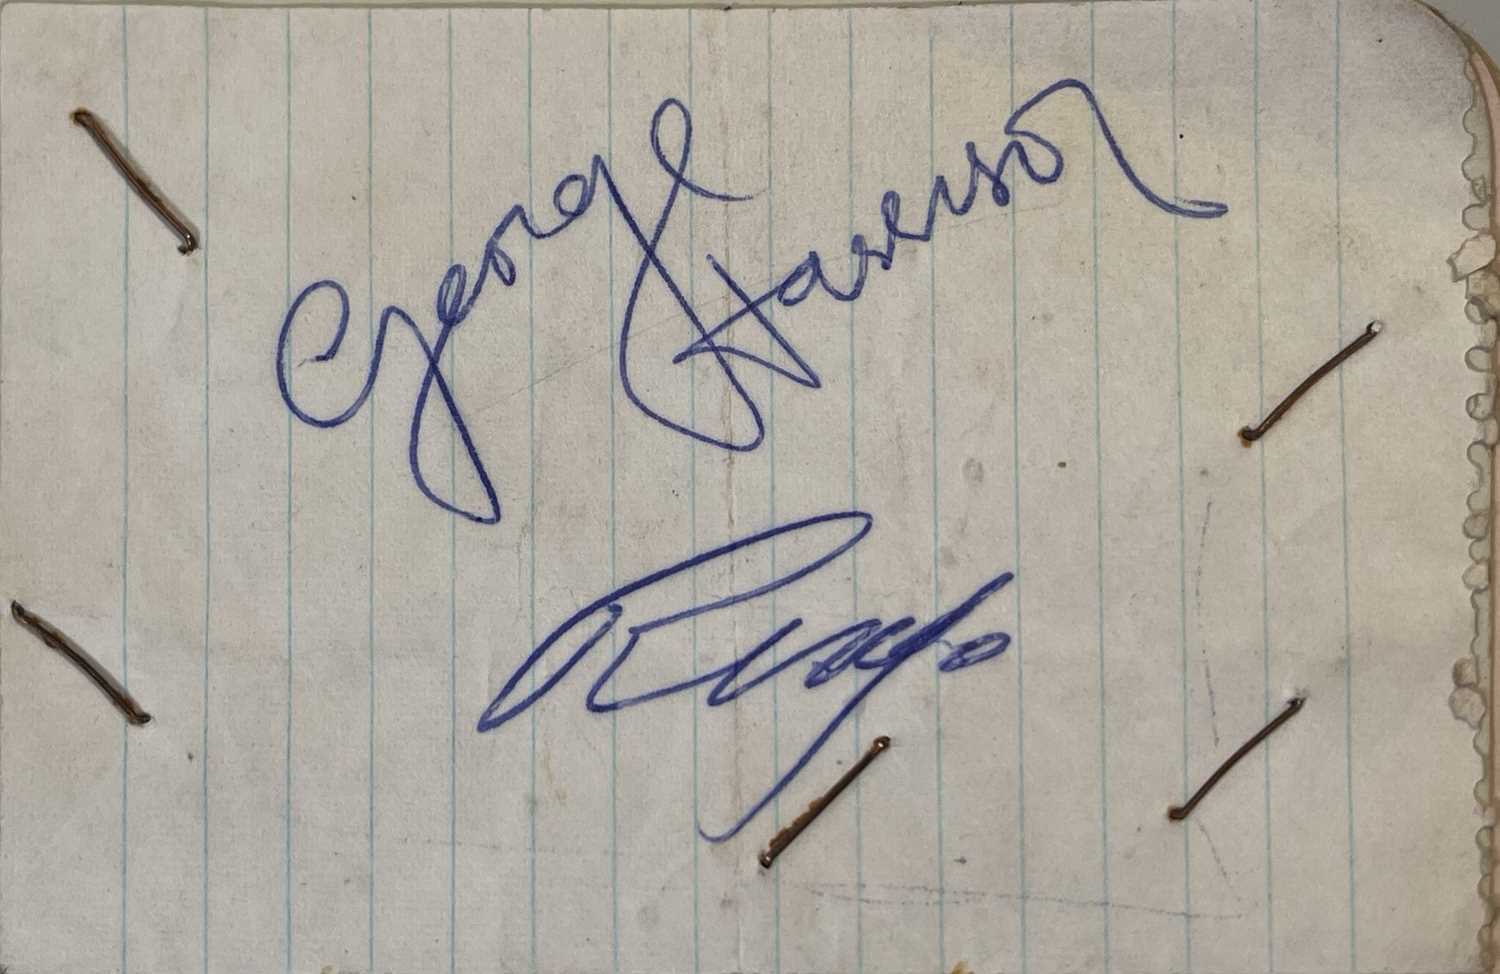 George Harrison
Ringo